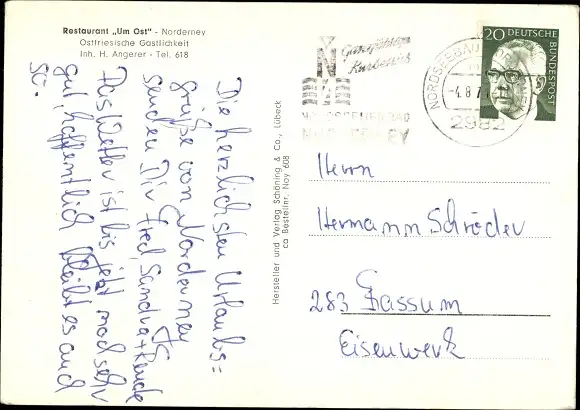 Restaurant „Um Ost" - Norderney
Ostfriesische Gastlichkeit
Inh. H. Angerer - Tel. 618
Die herzlichsten Urlaubs=
grüße von Norderney
senden Dir Fred, Sandra +
Das Wetter ist bis jetzt noch sehr
gut, hoffentlich bleibt es auch
so.
Hersteller und Verlag Schöning & Co., Lübeck
ca Bestellnr. Noy 608
Kurbetrieb
NORDSEEHEILBAD
NORDERNEY
NORDSEEBAD
-4.8.7
2982
20 DEUTSCHE
BUNDESPOST
Herrn
Hermann Schröder
283 Bassum
Eisenwerk